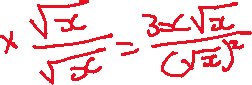 × \frac{\sqrt{x}}{\sqrt{x}} = \frac{3x\sqrt{x}}{(\sqrt{x})^2}